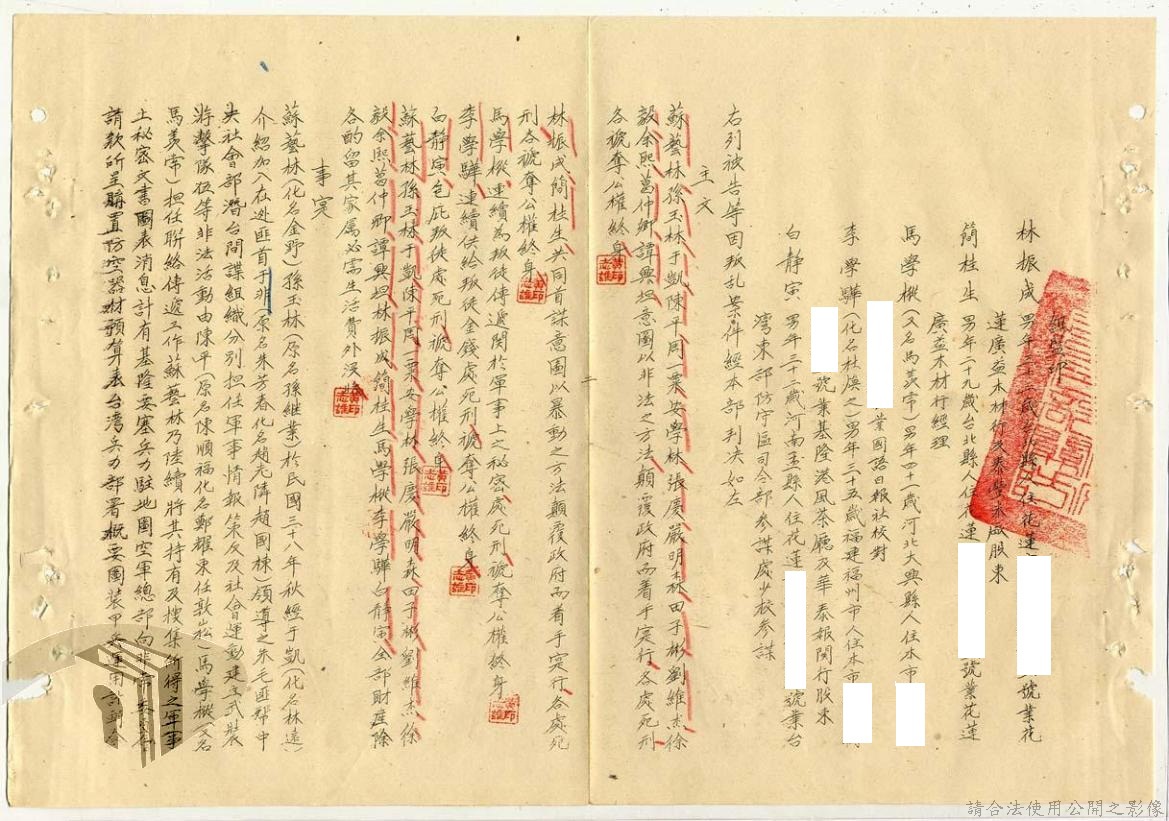 林振成 男年三十三歲台北縣人住花蓮 號業花
蓮廣益木材行及泰豐 股東
簡桂生 男年二十九歲台北縣人住花蓮 號業花蓮
廣益木材行經理
馬學樅(又名馬美常)男年四十一歲河北大興縣人住本市
業國語日報社校對
李學驊(化名杜煥之)男年三十五歲福建福州市人住本市
號業基隆港風茶廳及華泰報関行股末
白靜寅 男年三十二歲河南孟縣人住花蓮 號業台
灣東部防守區司令部參謀處少校參謀
右列被告等因叛乱案件經本部判决如左
主文
蘇藝林孫玉林于凱陳平周一粟安學林張慶嚴明森田子彬劉維杰徐
毅余熙萬仲卿譚興坦意圖以非法之方法顛覆政府而着手实行各處死刑
各褫奪公權終身
林振成簡桂生共同首謀意圖以暴動之方法顛覆政府而着手实行各處死
刑各褫奪公權終身
馬學樅連續為叛徒傳遞関於軍事上之秘密處死刑褫奪公權終身
李學驊連續供給叛徒金錢處死刑褫奪公權終身
白靜寅包庇叛徒處死刑褫奪公權終身
蘇藝林孫玉林于凱陳平周一粟安學林張慶嚴明森田子彬劉維杰徐
毅余熙萬仲卿譚興坦林振成簡桂生馬學樅李學驊白靜寅全部財産除
各酌留其家属必需生活費外没收
事实
蘇藝林(化名金野)孫玉林(原名孫継業)於民國三十八年秋經于凱(化名林遠)
介紹加入在逃匪首于非(原名朱芳春化名趙光隣趙國棟)領導之朱毛匪幫中
央社會部潛台間諜組織分別担任軍事情報策反及社會運動建立武裝
游擊隊伍等非法活動由陳平(原名陳順福化名鄭耀東任敦崧)馬學樅(又名
馬美常)担任联絡傳遞工作蘇藝林乃陸續將其持有及搜集所得之軍事
上秘密文書圖表消息計有基隆要塞兵力駐地圖空軍總部向非常委員会
請款所呈購置防空器材預算表台湾兵力部署概要圖裝甲兵運用計劃令
請合法使用公開之影像